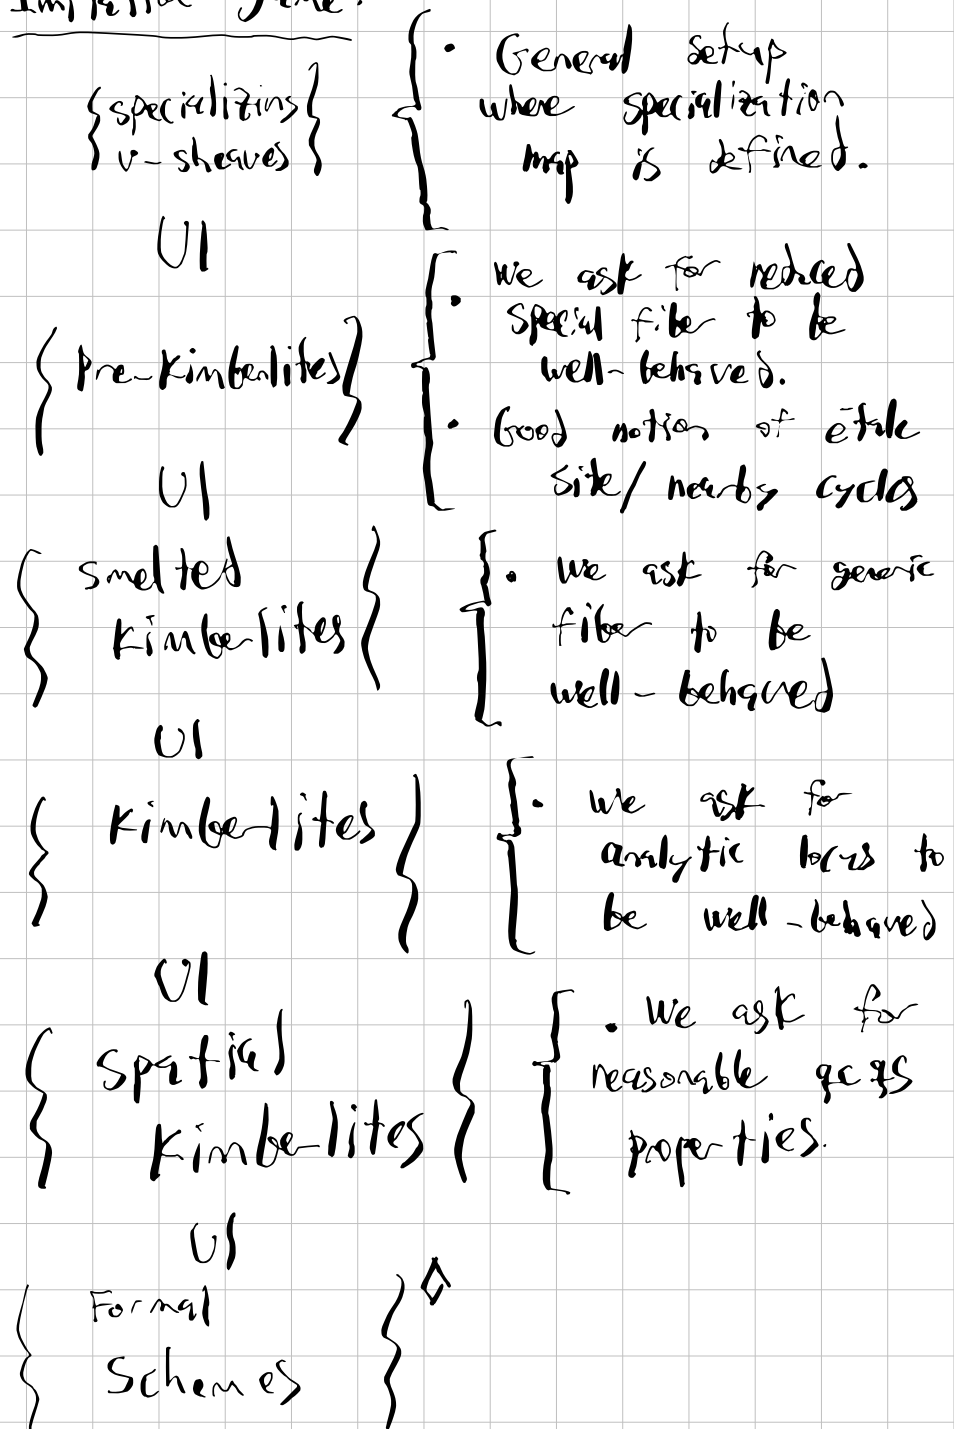 game:
{specializing
v-sheaves}
• General setup
where specialization
map is defined.
UI
• we ask for reduced
special fiber to be
well-behaved.
{Pre-Kimberlites}
• Good notion of étale
site/nearby cycles
UI
{smelted
Kimberlites}
• We ask for generic
fiber to be
well-behaved
UI
{Kimberlites}
• We ask for
analytic locus to
be well-behaved
UI
{Spatial
Kimberlites}
• We ask for
reasonable qcqs
properties.
UI
{Formal
Schemes}◊